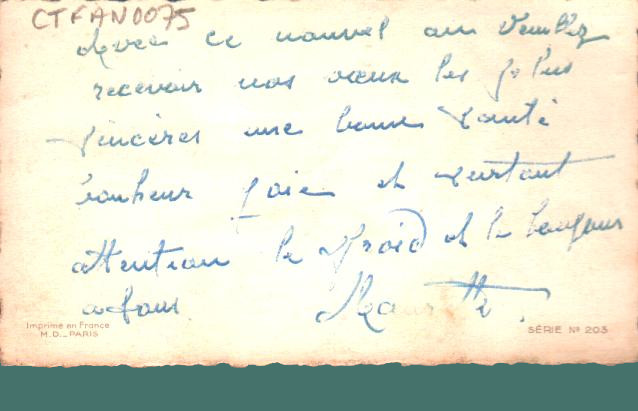 CTFAN0075
Avec ce nouvel an Veuillez
recevoir nos vœux les plus
sincères une bonne santé
bonheur joie et surtout
attention le froid et le
a tous
Imprimé en France
M.D._PARIS
SÉRIE Nº 203